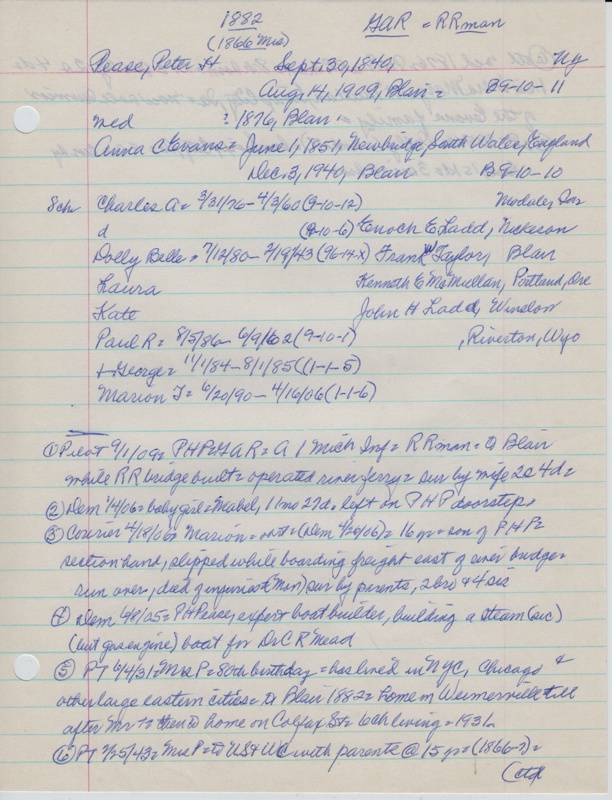 1882 GAR = RRman
(1866 Mrs)
Pease, Peter H Sept. 30, 1840, Ny
Aug. 14, 1909, Blair = B9-10-11
med : 1876, Blair
Anna C Evans = June 1, 1851, Newbridge, South Wales, England
Dec. 3, 1940, Blair B9-10-10
Sch Charles A = 3/31/76 - 4/3/60 (9-10-12) Modale, Ia
d (9-10-6) Enoch E Ladd, Nickerson
Dolly Belle = 7/12/80 - 2/19/43 (96-14x) Frank W Taylor, Blair
Laura Kenneth C McMullan, Portland, Ore
Kate John H Ladd, Winslow
Paul R = 8/5/86 - 6/9/62 (9-10-1) , Riverton, Wyo
+ George = 11/1/84 - 8/1/85 (1-1-5)
Marion T = 6/20/90 - 4/16/06 (1-1-6)
① Pilot 9/1/09 = PHP = GAR = A 1 Mich Inf = RRman = to Blair
while RR bridge built = operated river ferry = sur by wife 2s 4d =
② Dem 1/4/06 = baby girl = Mabel, 11 mo 27d, left on PHP doorstep,
③ Courier 4/18/06 = Marion = (Dem 4/20/06) = 16 yr = son of PHP =
section hand, slipped while boarding freight east of river bridge =
run over, died of injuries (Mon) sur by parents, 2 bro & 4 sis
④ Dem 4/8/05 = PH Pease, expert boat builder, building a steam (sic)
(but gas engine) boat for Dr C R Mead
⑤ PT 6/4/31 = Mrs P = 80th birthday = has lived in NYC, Chicago &
other large eastern cities = to Blair 1882 = home in Weimerville till
after Mr + = then to home on Colfax St = 6ch living = 1931
⑥ PT 2/25/43 = Mrs P = to US & WC with parents @ 15 yr = (1866-7) =
(ctd